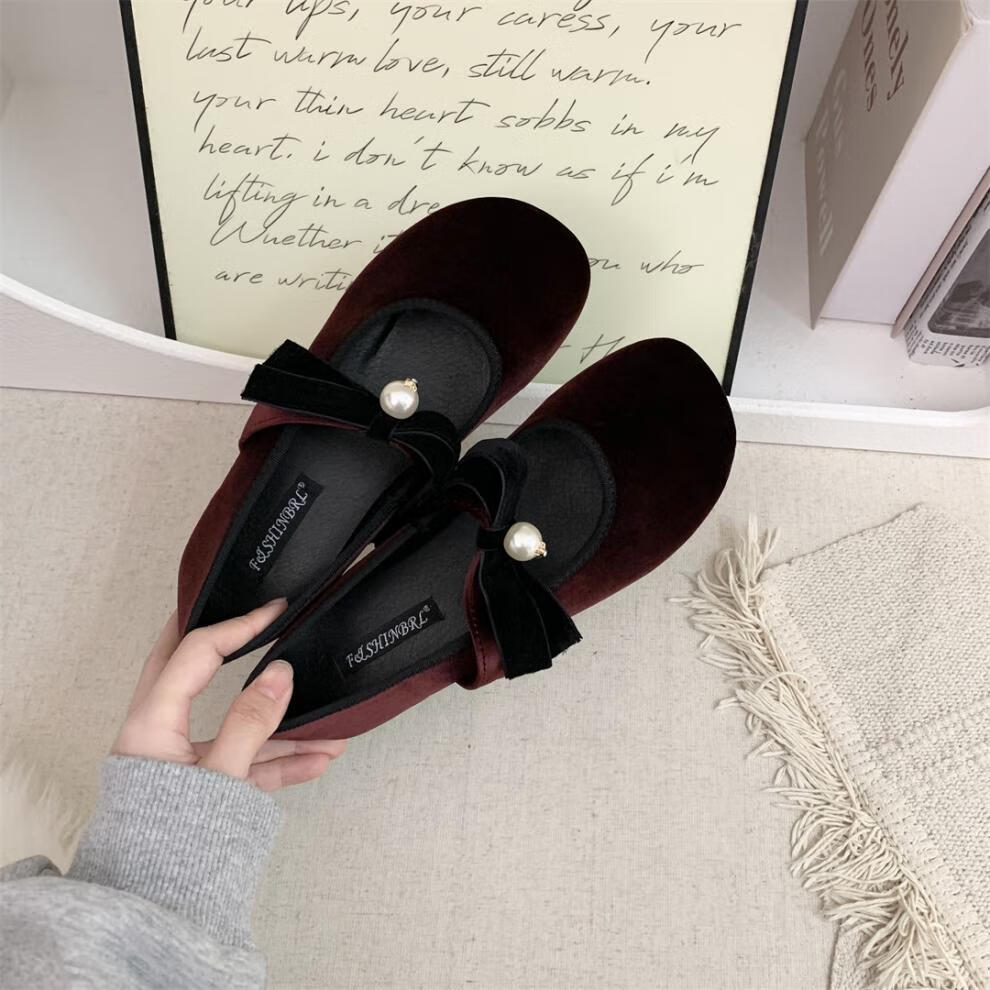 your lips, your caress, your
last warm love, still warm.
your thin heart sobbs in my
heart. i don't know as if i'm
lifting in a dre
Wuether i ou who
are writi
th
onely
Ones
F&SHINBRL®
F&SHINBRL®